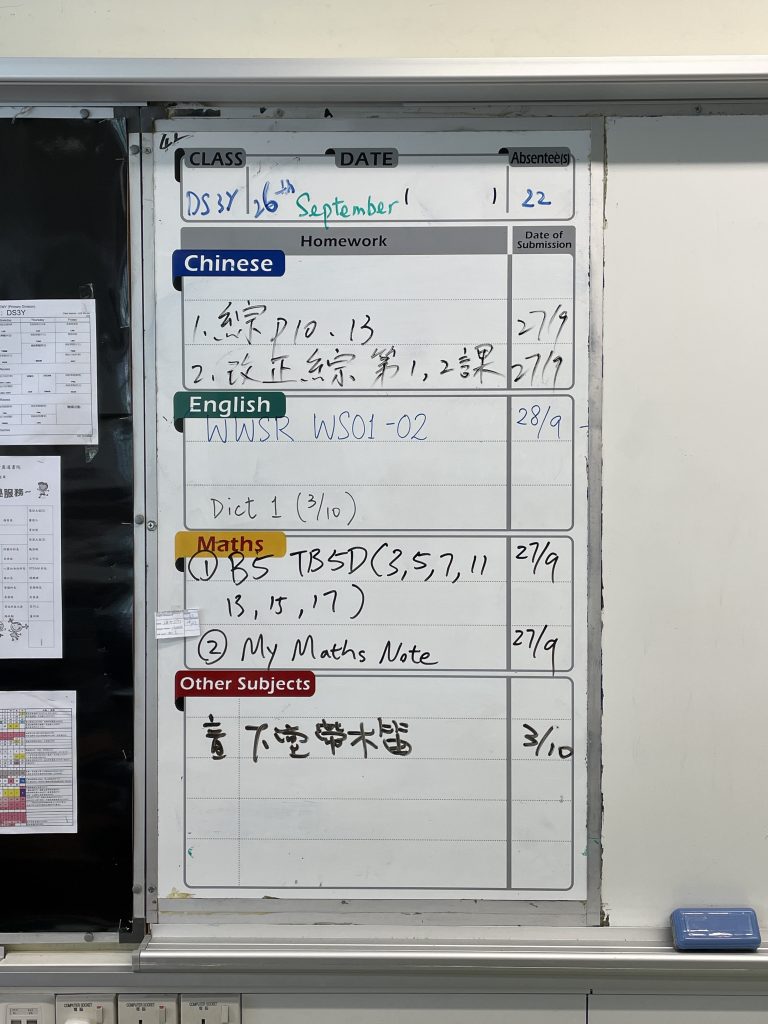 CLASS DATE Absentee(s)
DS3Y 26th September ( ) 22
Homework Date of Submission
Chinese
1. 綜 P10、13 27/9
2. 改正綜 第1,2課 27/9
English
WWSR WS01-02 28/9
Dict 1 (3/10)
Maths
① B5 TB5D(3,5,7,11 27/9
13,15,17)
② My Maths Note 27/9
Other Subjects
音 下堂帶木笛 3/10
: DS3Y
服務~
COMPUTER SOCKET
COMPUTER SOCKET
COMPUTER SOCKET